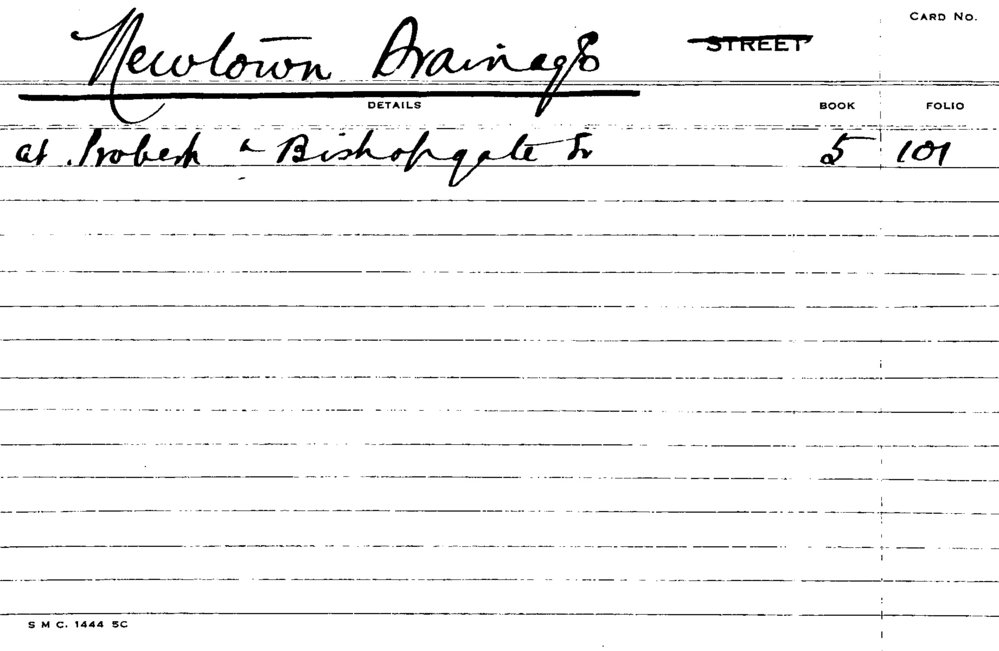 CARD NO.
Newtown Drainage STREET
DETAILS BOOK FOLIO
at Probert & Bishopgate Sts 5 101
S M C. 1444 5C